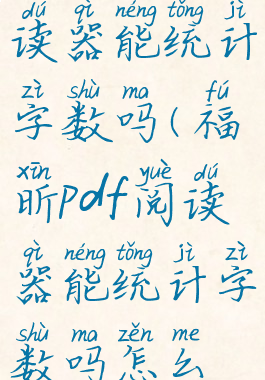 dú qì néng tǒng jì
读器能统计
zì shù ma fú
字数吗(福
xīn yuè dú
昕pdf阅读
qì néng tǒng jì zì
器能统计字
shù ma zěn me
数吗怎么